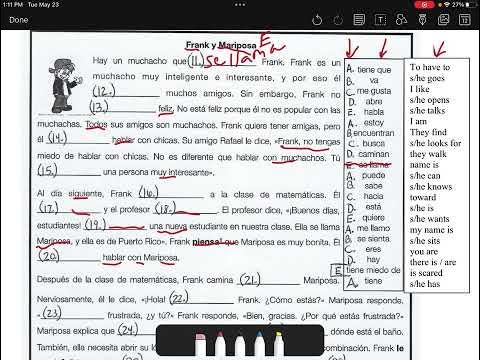 1:11 PM Tue May 23
27%
Done
Frank y Mariposa
Hay un muchacho que (11.) se llama Frank. Frank es un
muchacho muy inteligente e interesante, y por eso él
(12.) muchos amigos. Sin embargo, Frank no
(13.) feliz. No está feliz porque él no es popular con las
muchachas. Todos sus amigos son muchachos. Frank quiere tener amigas, pero él
(14.) hablar con chicas. Su amigo Rafael le dice, «Frank, no tengas
miedo de hablar con chicas. No es diferente que hablar con muchachos. Tú
(15.) una persona muy interesante».
Al día siguiente, Frank (16.) a la clase de matemáticas. Él
(17.) y el profesor (18.). El profesor dice, «¡Buenos días,
estudiantes! (19.) una nueva estudiante en nuestra clase. Ella se llama
Mariposa, y ella es de Puerto Rico». Frank piensa que Mariposa es muy bonita. Él
(20.) hablar con Mariposa.
Después de la clase de matemáticas, Frank camina (21.) Mariposa.
Nerviosamente, él le dice, «¡Hola! (22.) Frank. ¿Cómo estás?» Mariposa responde,
«(23) frustrada, ¿y tú?» Frank responde, «Bien, gracias. ¿Por qué estás frustrada?»
Mariposa explica que (24.) dónde está el baño.
También, ella necesita abrir su
combinación. Frank le
E
A. tiene que
B. va
C. me gusta
D. abre
E. habla
A. estoy
B. encuentran
C. busca
D. caminan
E. se llama
A. puede
B. sabe
C. hacia
D. está
E. quiere
A. me llamo
B. se sienta
C. eres
D. hay
E. tiene miedo de
A. tiene
To have to
s/he goes
I like
s/he opens
s/he talks
I am
They find
s/he looks for
they walk
name is
s/he can
s/he knows
toward
s/he is
s/he wants
my name is
s/he sits
you are
there is / are
is scared
s/he has